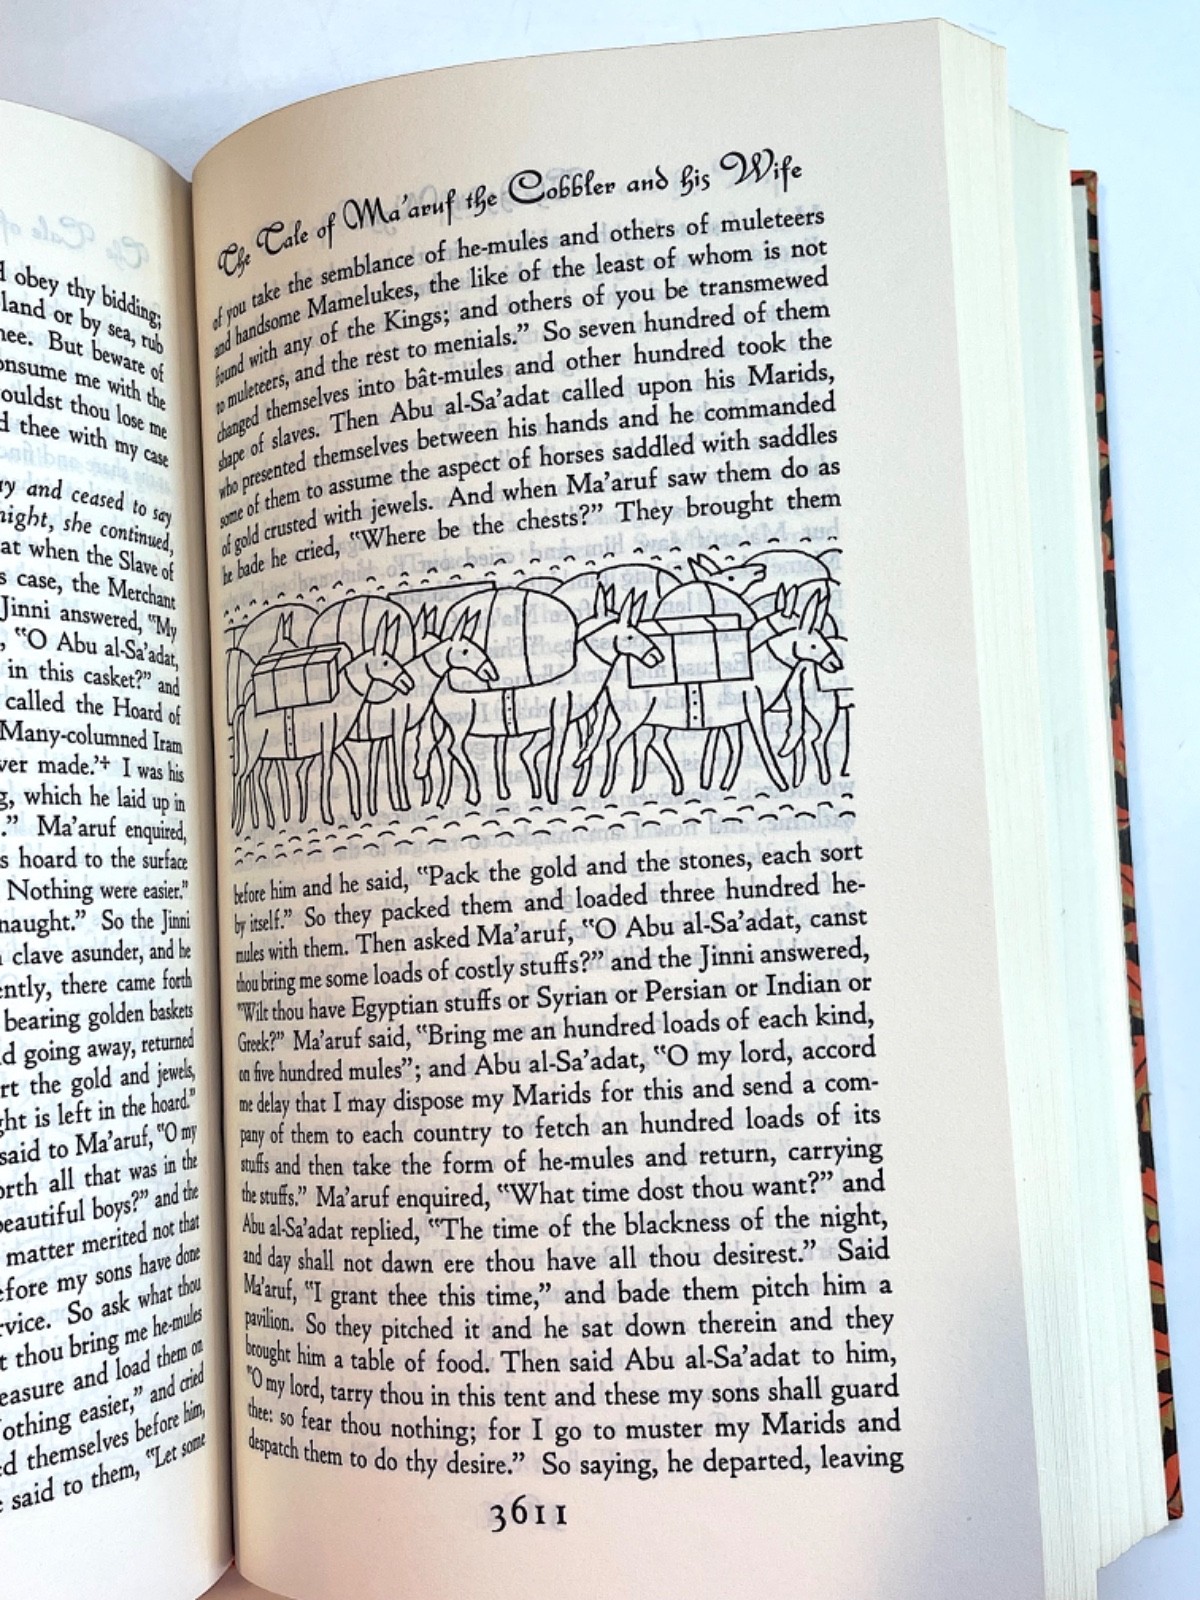 obey thy bidding;
land or by sea, rub
But beware of
me with the
thou lose me
thee with my case
and ceased to say
night, she continued,
at when the Slave of
case, the Merchant
Jinni answered, "My
"O Abu al-Sa'adat,
in this casket?" and
called the Hoard of
Many-columned Iram
made.'‡ I was his
which he laid up in
Ma'aruf enquired,
hoard to the surface
Nothing were easier."
naught." So the Jinni
clave asunder, and he
there came forth
bearing golden baskets
going away, returned
the gold and jewels,
is left in the hoard."
said to Ma'aruf, "O my
all that was in the
beautiful boys?" and the
matter merited not that
my sons have done
So ask what thou
thou bring me he-mules
and load them on
easier," and cried
themselves before him,
said to them, "Let some
The Tale of Ma'aruf the Cobbler and his Wife
of you take the semblance of he-mules and others of muleteers
and handsome Mamelukes, the like of the least of whom is not
found with any of the Kings; and others of you be transmewed
to muleteers, and the rest to menials." So seven hundred of them
changed themselves into bât-mules and other hundred took the
shape of slaves. Then Abu al-Sa'adat called upon his Marids,
who presented themselves between his hands and he commanded
some of them to assume the aspect of horses saddled with saddles
of gold crusted with jewels. And when Ma'aruf saw them do as
he bade he cried, "Where be the chests?" They brought them
before him and he said, "Pack the gold and the stones, each sort
by itself." So they packed them and loaded three hundred he-
mules with them. Then asked Ma'aruf, "O Abu al-Sa'adat, canst
thou bring me some loads of costly stuffs?" and the Jinni answered,
"Wilt thou have Egyptian stuffs or Syrian or Persian or Indian or
Greek?" Ma'aruf said, "Bring me an hundred loads of each kind,
on five hundred mules"; and Abu al-Sa'adat, "O my lord, accord
me delay that I may dispose my Marids for this and send a com-
pany of them to each country to fetch an hundred loads of its
stuffs and then take the form of he-mules and return, carrying
the stuffs." Ma'aruf enquired, "What time dost thou want?" and
Abu al-Sa'adat replied, "The time of the blackness of the night,
and day shall not dawn ere thou have all thou desirest." Said
Ma'aruf, "I grant thee this time," and bade them pitch him a
pavilion. So they pitched it and he sat down therein and they
brought him a table of food. Then said Abu al-Sa'adat to him,
"O my lord, tarry thou in this tent and these my sons shall guard
thee: so fear thou nothing; for I go to muster my Marids and
despatch them to do thy desire." So saying, he departed, leaving
3611